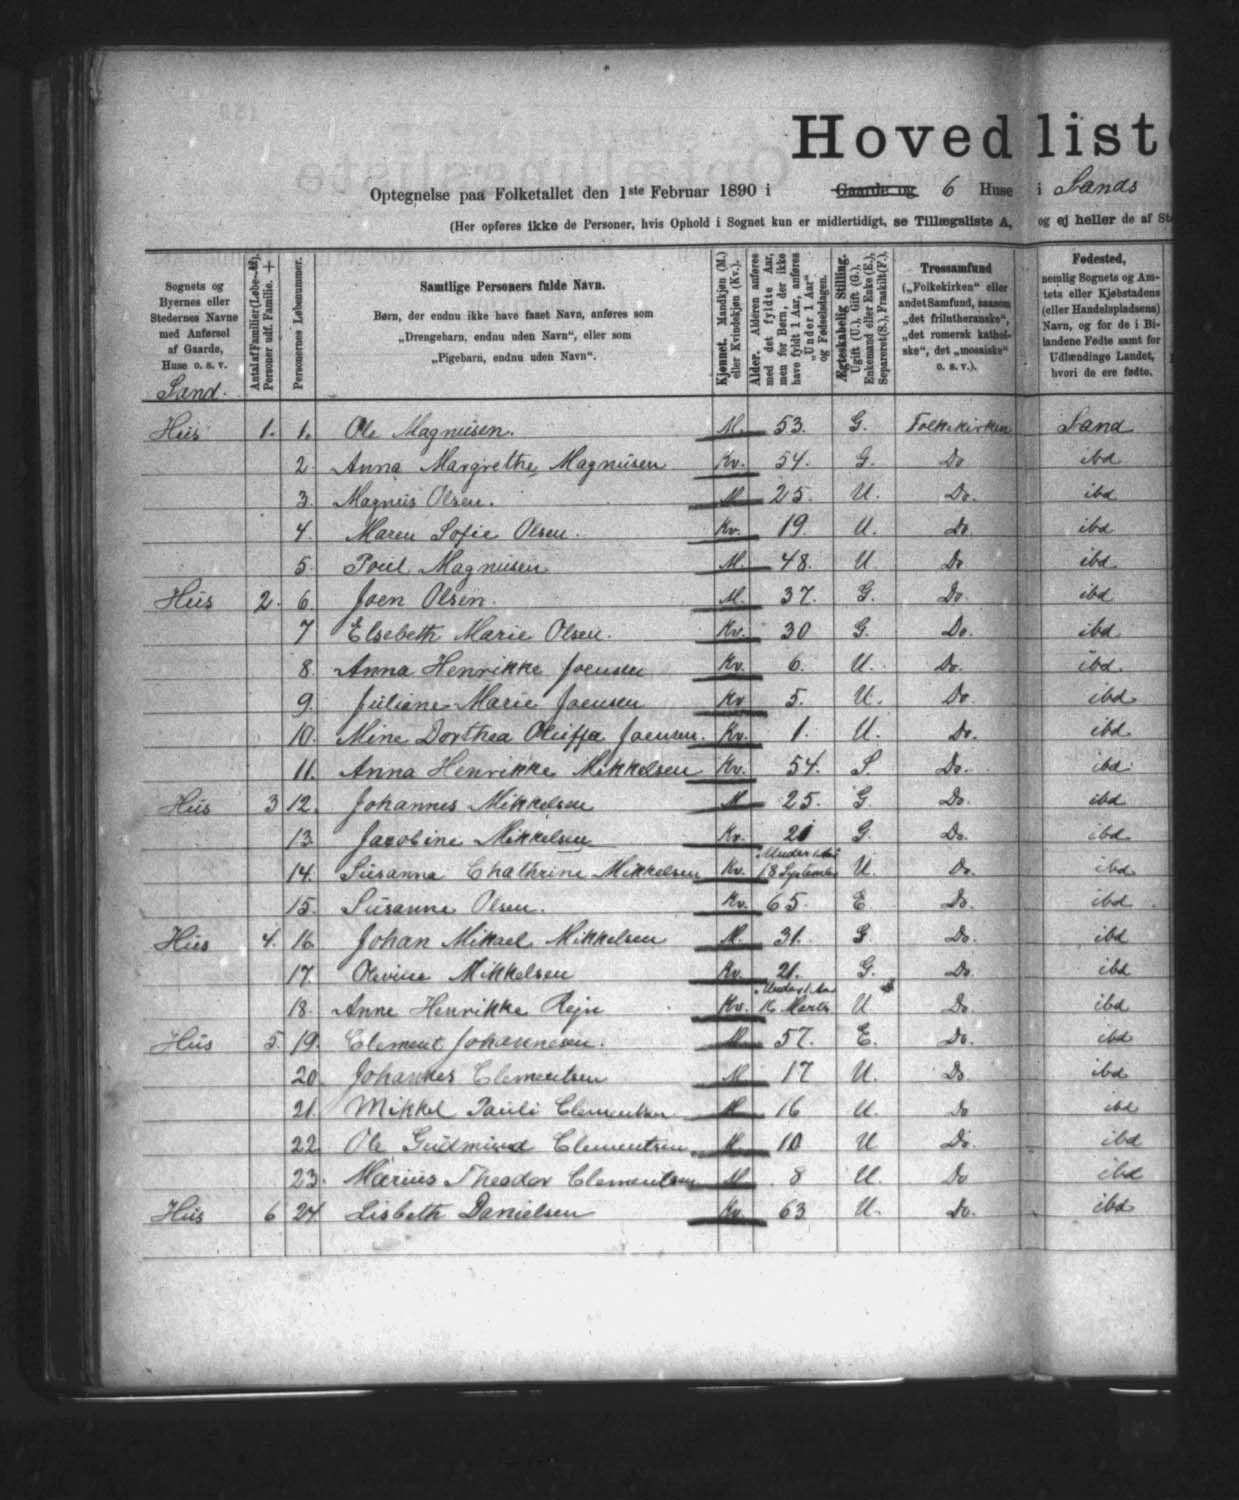 Hovedliste
Optegnelse paa Folketallet den 1ste Februar 1890 i Gaarde og 6 Huse i Sands
(Her opføres ikke de Personer, hvis Ophold i Sognet kun er midlertidigt, se Tillægsliste A, og ej heller de af
Sognets og Byernes eller Stedernes Navne med Anførsel af Gaarde, Huse o. s. v.
Antal af Familier (Løbe-№), Personer udf. Familie. +
Personernes Løbenummer.
Samtlige Personers fulde Navn.
Børn, der endnu ikke have faaet Navn, anføres som
„Drengebarn, endnu uden Navn“, eller som
„Pigebarn, endnu uden Navn“.
Kjønnet. Mandkjøn (M.) eller Kvindekjøn (Kv.).
Alder. Alderen anføres med det fyldte Aar, men for Børn, der ikke have fyldt 1 Aar, anføres „Under 1 Aar“ og Fødselsdagen.
Ægteskabelig Stilling. Ugift (U.), Gift (G.), Enkemand eller Enke (E.), Separeret (S.), Fraskilt (F.).
Trossamfund („Folkekirken“ eller andet Samfund, saasom „det frilutheranske“, „det romersk katholske“, det „mosaiske“ o. s. v.).
Fødested, nemlig Sognets og Amtets eller Kjøbstadens (eller Handelspladsens) Navn, og for de i Bilandene Fødte samt for Udlændinge Landet, hvori de ere fødte.
Sand.
Hus 1. 1. Ole Magnusen. M. 53. G. Folkekirken Sand
2. Anna Margrethe Magnusen Kv. 54. G. Do ibd
3. Magnus Olsen. M 25. U. Do. ibd
4. Maren Sofie Olsen. Kv. 19. U. Do. ibd
5. Poul Magnusen M. 48. U Do ibd.
Hus 2. 6. Joen Olsen. M. 37. G. Do. ibd
7 Elsebeth Marie Olsen. Kv. 30 G. Do. ibd
8. Anna Henrikke Joensen Kv. 6. U. Do. ibd.
9. Juliane Marie Joensen Kv 5. U. Do ibd
10. Mine Dorthea Oluffa Joensen. Kv. 1. U. Do. ibd
11. Anna Henrikke Mikkelsen Kv. 54. S. Do. ibd
Hus 3 12. Johannes Mikkelsen M 25. G. Do. ibd
13. Jacobine Mikkelsen Kv. 21 G. Do. ibd
14. Susanna Chathrine Mikkelsen Kv. Under 1 Aar 18 September U. Do. ibd
15. Susanne Olsen. Kv. 65. E Do. ibd
Hus 4. 16. Johan Mikael Mikkelsen M. 31. G Do. ibd
17. Olevine Mikkelsen Kv. 21. G. Do. ibd
18. Anne Henrikke Rejn Kv. Under 1 Aar 16 Marts U Do. ibd
Hus 5. 19. Clement Johannesen. M. 57. E. Do. ibd
20. Johannes Clementsen M 17 U. Do ibd
21. Mikkel Pauli Clementsen M 16 U. Do ibd
22. Ole Gudmund Clementsen M. 10 U Do. ibd
23. Marius Theodor Clementsen M. 8 U. Do ibd
Hus 6 24. Lisbeth Danielsen Kv. 63 U. Do. ibd